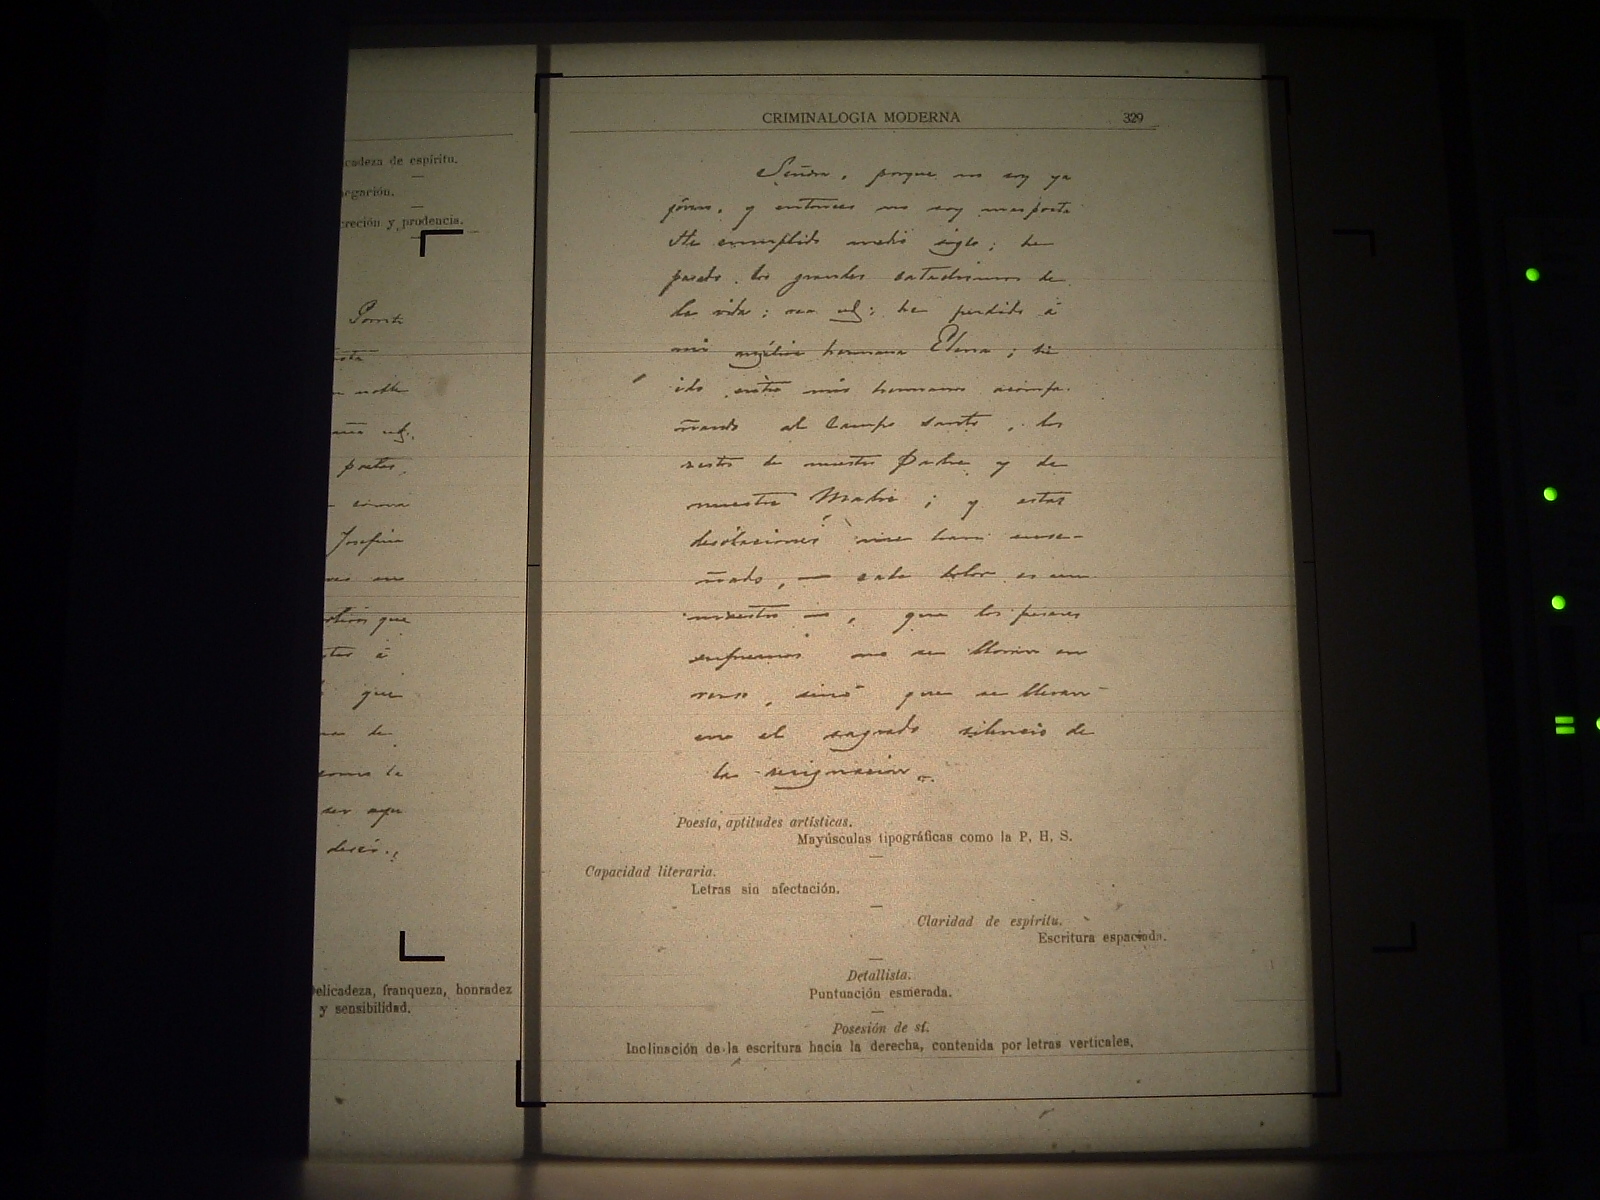 cadeza de espíritu.
egación.
creción y prudencia.
noble
poetas.
corona
Josefina
que
á
que
de
la
ser
elicadeza, franqueza, honradez
y sensibilidad.
CRIMINALOGIA MODERNA 329
Señora, porque no soy ya
jóven, y entonces no soy mas poeta
He cumplido medio siglo; he
pasado los grandes cataclismos de
la vida; vea ud; he perdido á
mi angélica hermana Elena; he
ido entre mis hermanos acompa-
ñando al Campo santo, los
restos de nuestro Padre y de
nuestra Madre; y estas
desolaciones me han ense-
ñado, — cada dolor es un
maestro —, que los pesares
supremos no se lloran en
verso, sinó que se llevan
en el sagrado silencio de
la resignación.
Poesía, aptitudes artísticas.
Mayúsculas tipográficas como la P, H, S.
Capacidad literaria.
Letras sin afectación.
Claridad de espíritu.
Escritura espaciada.
Detallista.
Puntuación esmerada.
Posesión de sí.
Inclinación de la escritura hacia la derecha, contenida por letras verticales.